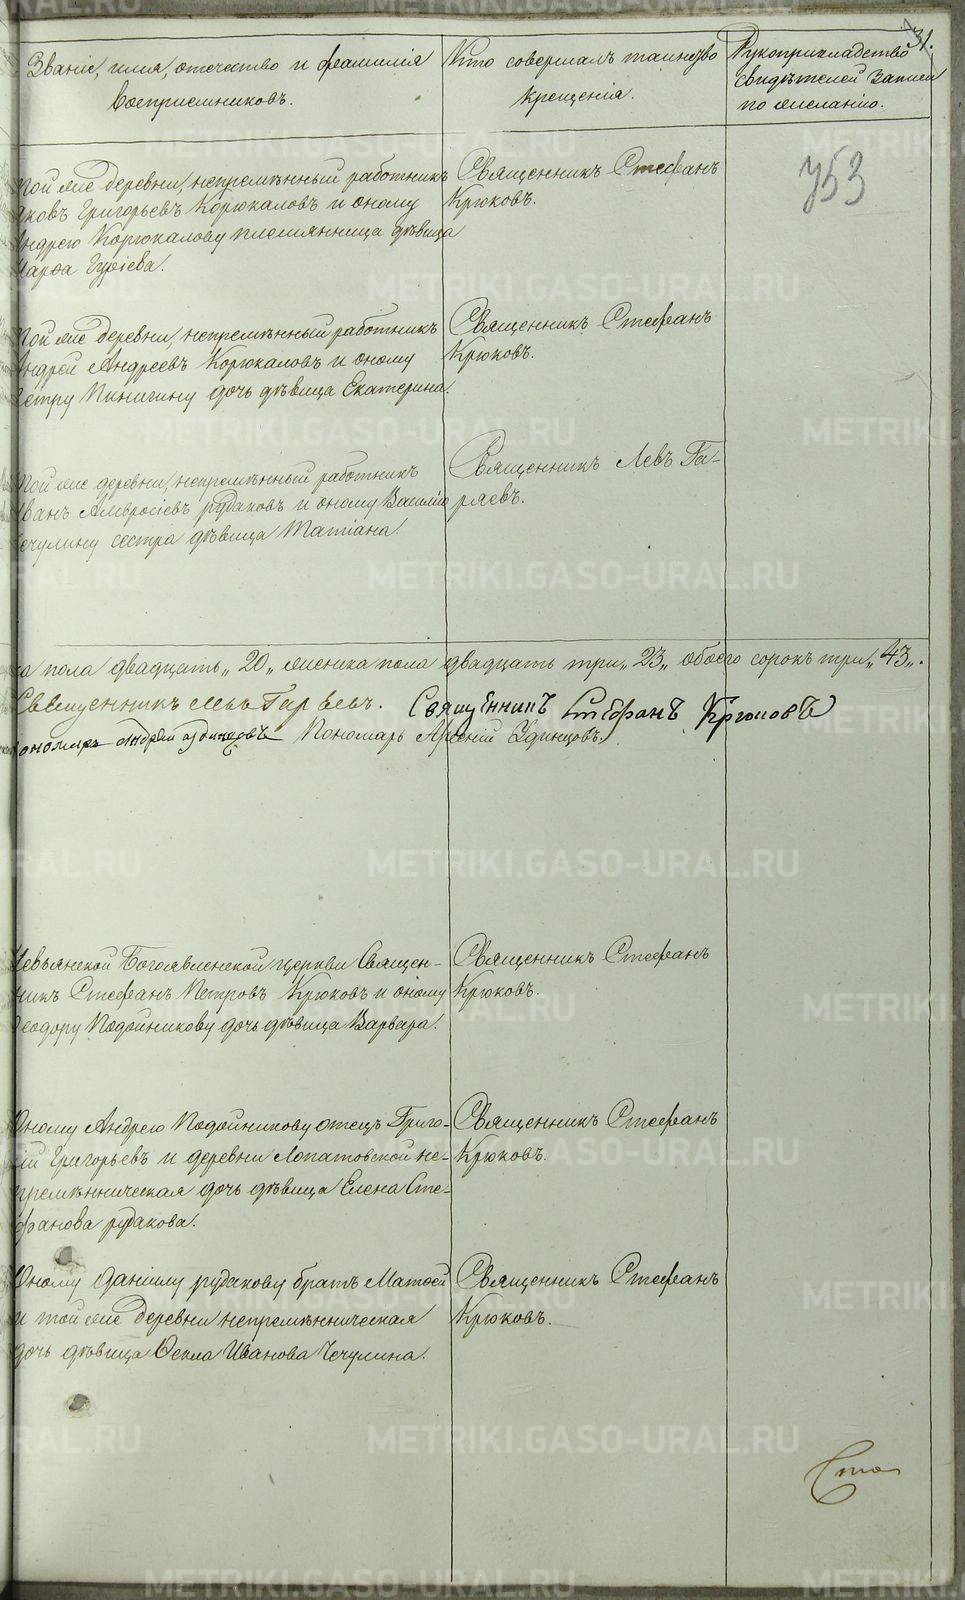 31.
Званіе, имя, отечество и фамилія
Воспріемниковъ.
Кто совершалъ таинство
крещенія.
Рукоприкладство
свидѣтелей записи
по желанію.
753
той же деревни, непремѣнный работникъ
Яковъ Григорьевъ Корюкаловъ и оному
Андрею Корюкалову племянница дѣвица
Марѳа Гурieва.
Священникъ Стефанъ
Крюковъ.
той же деревни, непремѣнный работникъ
Андрей Андреевъ Корюкаловъ и оному
Петру Пинигину дочь дѣвица Екатерина.
Священникъ Стефанъ
Крюковъ.
той же деревни, непремѣнный работникъ
Иванъ Амвросіевъ Рудаковъ и оному Василію
Чечулину сестра дѣвица Татіана.
Священникъ Левъ Га-
ряевъ.
пола двадцать „20„ женска пола двадцать три „23„ обоего сорокъ три „43„.
Священникъ Левъ Гаряевъ. Священникъ Стефанъ Крюковъ
пономарь Андрей Пономарь Арсеній Удинцовъ.
Невьянской Богоявленской церкви Священ-
никъ Стефанъ Петровъ Крюковъ и оному
Ѳеодору Подойникову дочь дѣвица Варвара.
Священникъ Стефанъ
Крюковъ.
Оному Андрею Подойникову отецъ Григо-
рій Григорьевъ и деревни Лопатовской не-
премѣнническая дочь дѣвица Елена Сте-
фанова Рудакова.
Священникъ Стефанъ
Крюковъ.
Оному Даніилу Рудакову братъ Матѳей
и той же деревни непремѣнническая
дочь дѣвица Ѳекла Иванова Чечулина.
Священникъ Стефанъ
Крюковъ.
METRIKI.GASO-URAL.RU